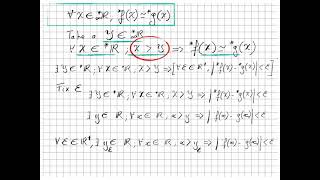 ∀ x ∈ *ℝ∞, *f(x) ≃ *g(x)
Take a y ∈ *ℝ∞
∀ x ∈ *ℝ, x > y ⇒ *f(x) ≃ *g(x)
∃ y ∈ *ℝ, ∀ x ∈ *ℝ, x > y ⇒ [∀ ε ∈ ℝ⁺, |*f(x) - *g(x)| < ε]
Fix ε
∃ y ∈ *ℝ, ∀ x ∈ *ℝ, x > y ⇒ |*f(x) - *g(x)| < ε
∀ ε ∈ ℝ⁺, ∃ y_ε ∈ ℝ, ∀ x ∈ ℝ, x > y_ε ⇒ |f(x) - g(x)| < ε